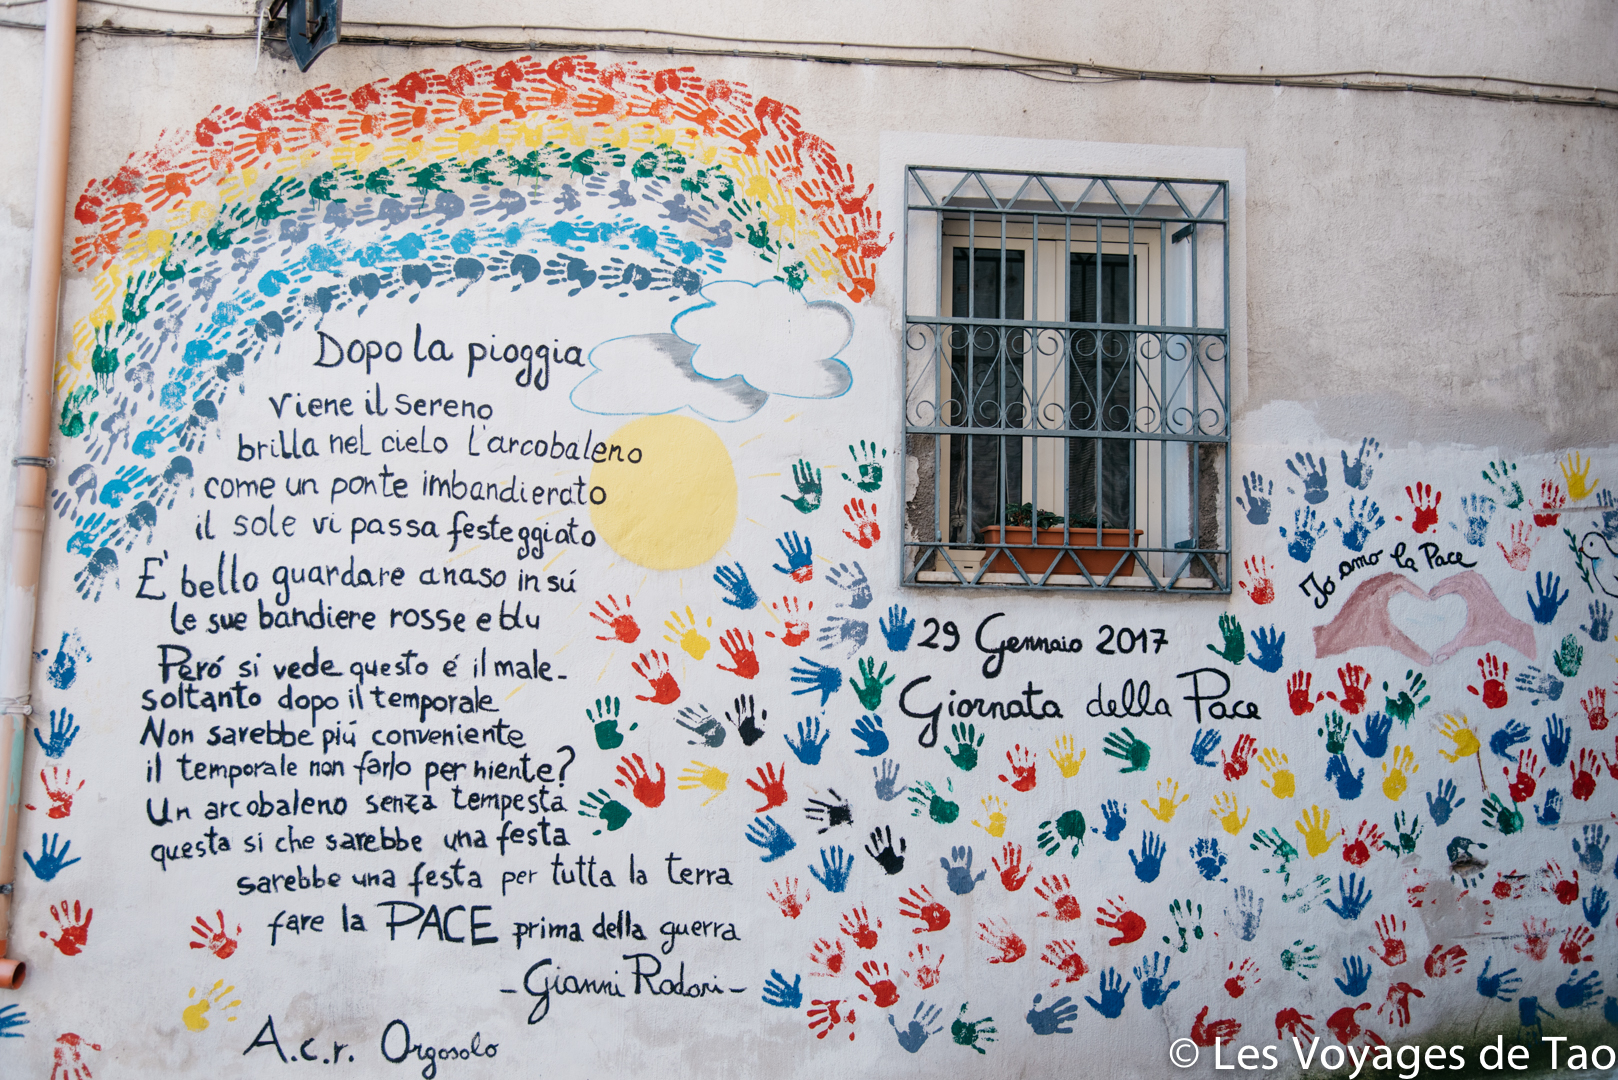 Dopo la pioggia
viene il sereno
brilla nel cielo l'arcobaleno
come un ponte imbandierato
il sole vi passa festeggiato
É bello guardare a naso in sú
le sue bandiere rosse e blu
Peró si vede questo é il male-
soltanto dopo il temporale
Non sarebbe piú conveniente
il temporale non farlo per niente?
Un arcobaleno senza tempesta
questa si che sarebbe una festa
sarebbe una festa per tutta la terra
fare la PACE prima della guerra
-Gianni Rodari-
A.c.r. Orgosolo
29 Gennaio 2017
Giornata della Pace
Io amo la Pace
© Les Voyages de Tao